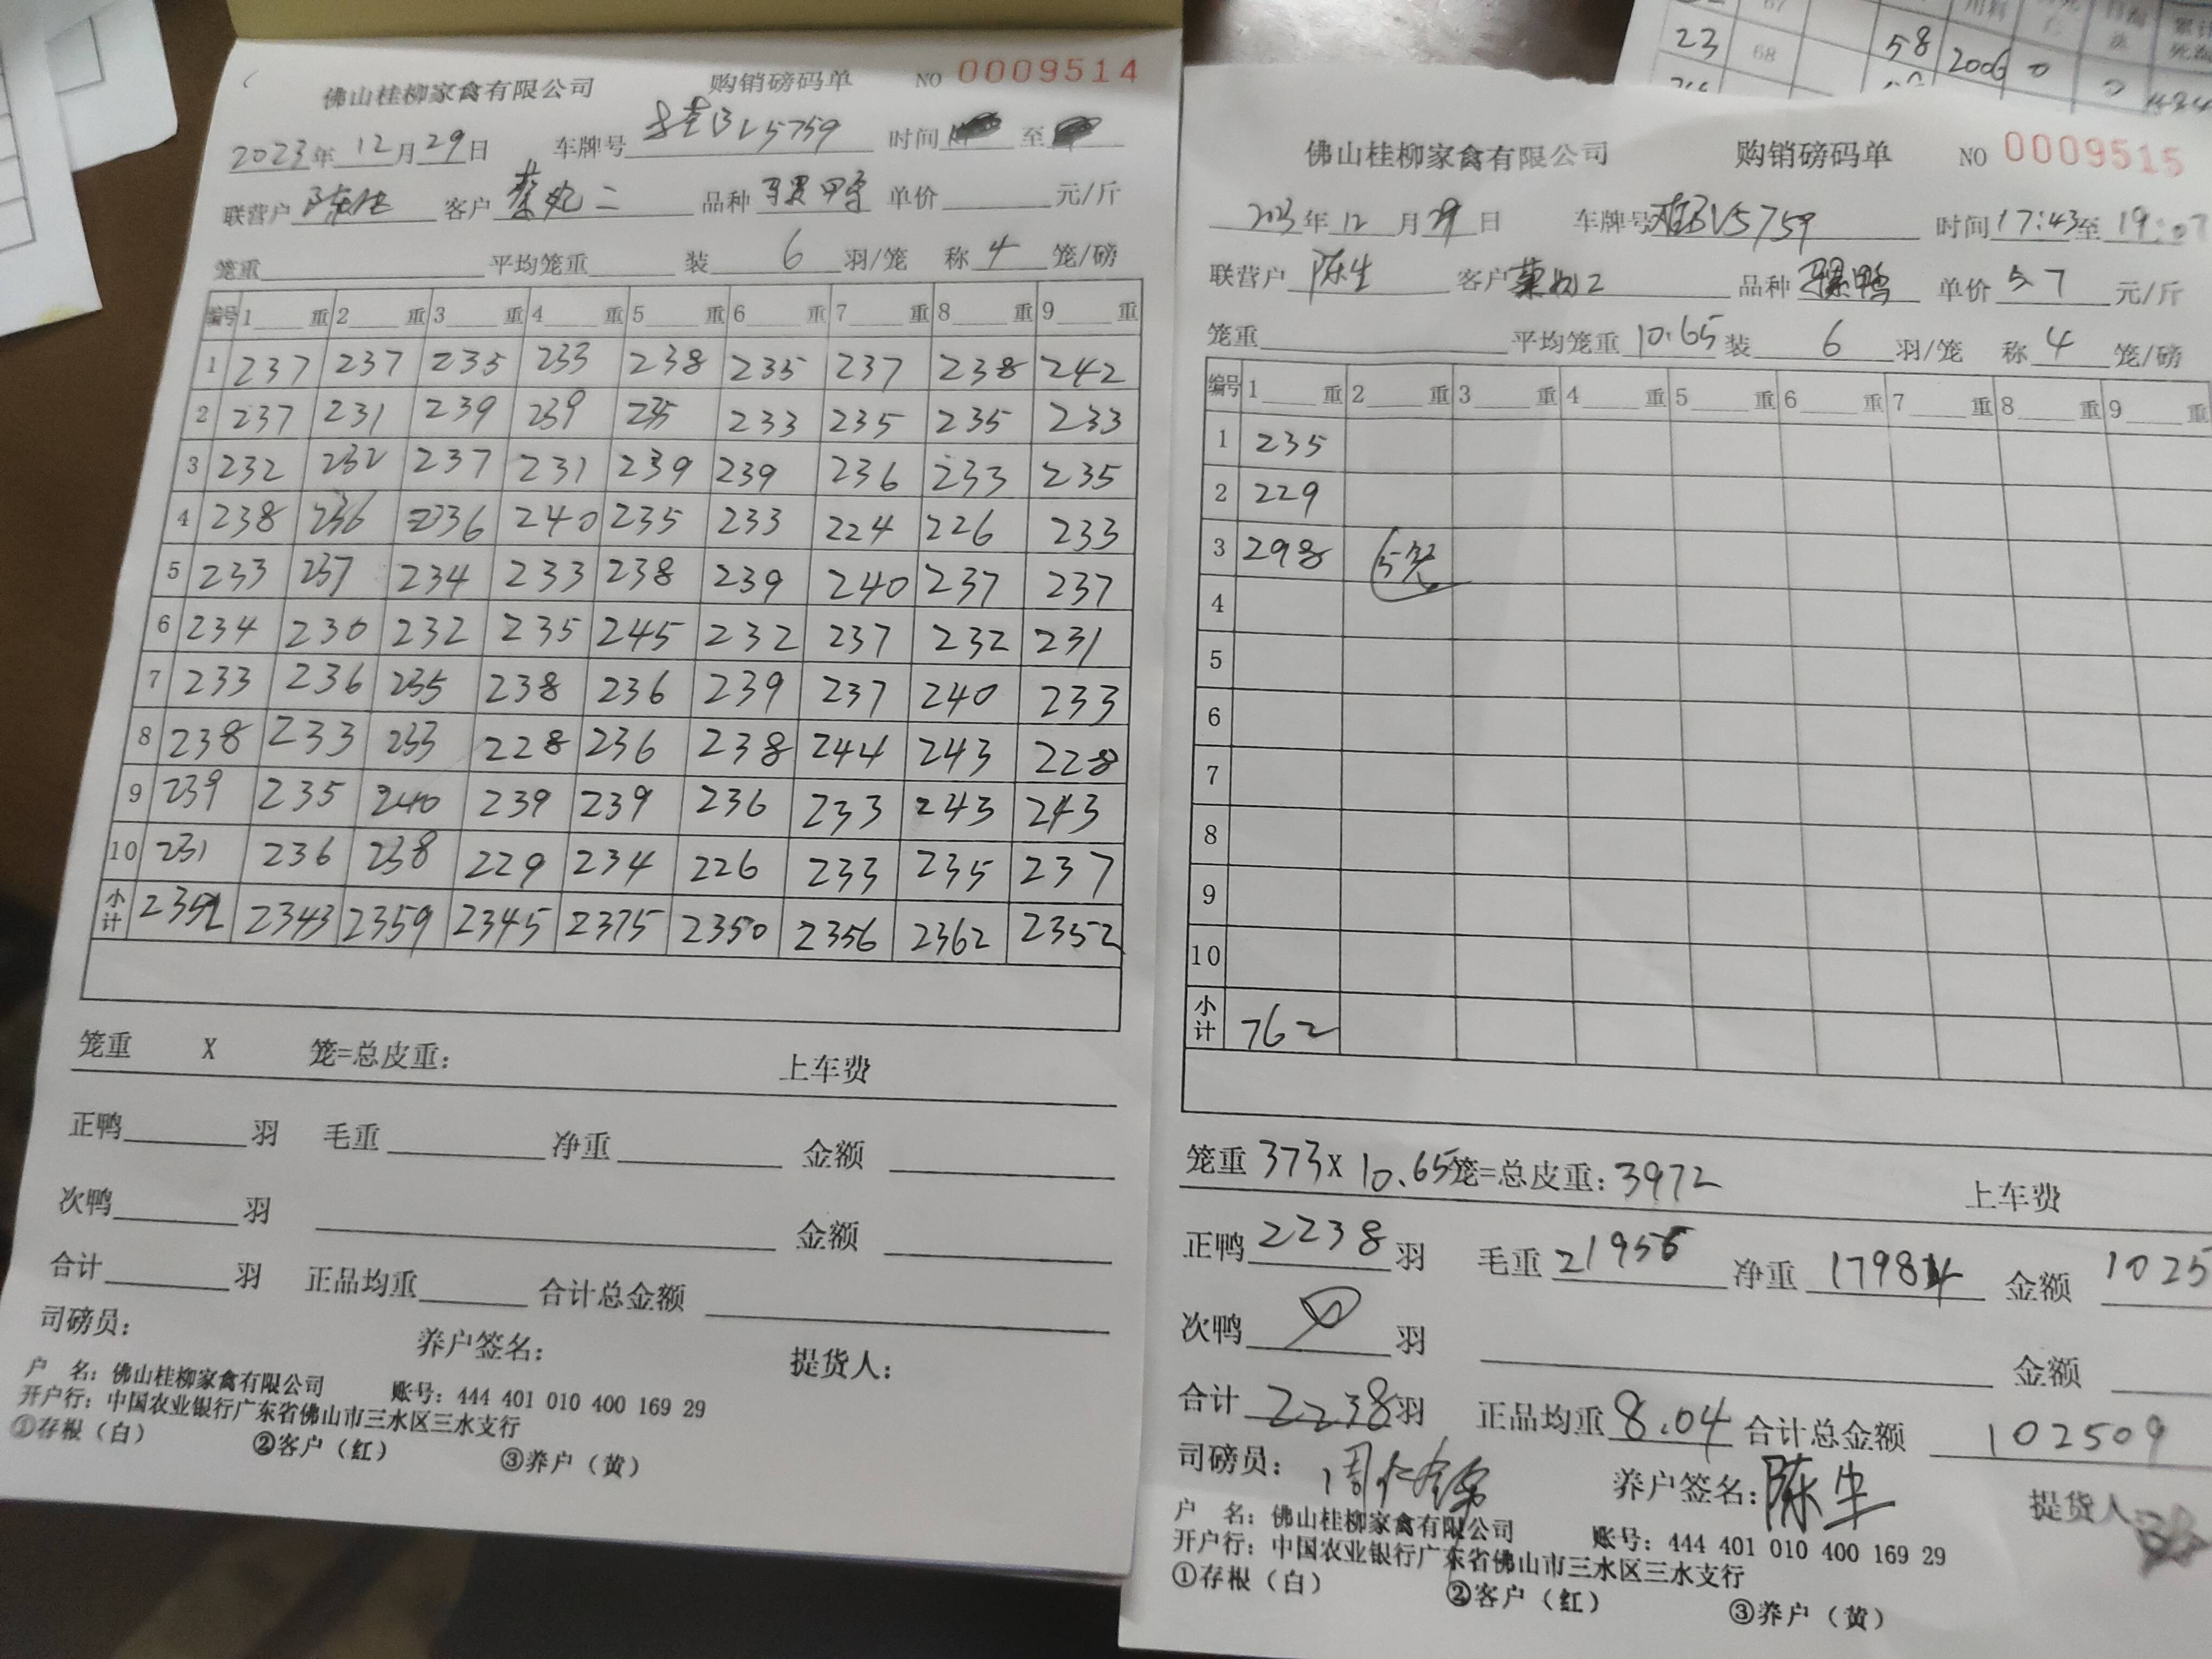 佛山桂柳家禽有限公司 购销磅码单 NO 0009514
2023年 12 月 29 日 车牌号 BV5759 时间 至
联营户 陈生 客户 品种 骡鸭 单价 元/斤
笼重 平均笼重 装 6 羽/笼 称 4 笼/磅
编号 1 重 2 重 3 重 4 重 5 重 6 重 7 重 8 重 9 重
1 237 237 235 233 238 235 237 238 242
2 237 231 239 239 235 233 235 235 233
3 232 232 237 231 239 239 236 233 235
4 238 236 236 240 235 233 224 226 233
5 233 237 234 233 238 239 240 237 237
6 234 230 232 235 245 232 237 232 231
7 233 236 235 238 236 239 237 240 233
8 238 233 233 228 236 238 244 243 228
9 239 235 240 239 239 236 233 243 243
10 231 236 238 229 234 226 233 235 237
小计 2352 2343 2359 2345 2375 2350 2356 2362 2352
笼重 X 笼=总皮重: 上车费
正鸭 羽 毛重 净重 金额
次鸭 羽 金额
合计 羽 正品均重 合计总金额
司磅员: 养户签名: 提货人:
户 名: 佛山桂柳家禽有限公司 账号: 444 401 010 400 169 29
开户行: 中国农业银行广东省佛山市三水区三水支行
①存根（白） ②客户（红） ③养户（黄）
佛山桂柳家禽有限公司 购销磅码单 NO 0009515
2023 年 12 月 29 日 车牌号 桂BV5759 时间 17:43 至 19:07
联营户 陈生 客户 品种 骡鸭 单价 5.7 元/斤
笼重 平均笼重 10.65 装 6 羽/笼 称 4 笼/磅
编号 1 重 2 重 3 重 4 重 5 重 6 重 7 重 8 重 9 重
1 235
2 229
3 298
4
5
6
7
8
9
10
小计 762
笼重 373 X 10.65 笼=总皮重: 3972
上车费
正鸭 2238 羽 毛重 21956 净重 17984 金额 1025
次鸭 羽 金额
合计 2238 羽 正品均重 8.04 合计总金额 102509
司磅员: 养户签名: 陈生 提货人
户 名: 佛山桂柳家禽有限公司 账号: 444 401 010 400 169 29
开户行: 中国农业银行广东省佛山市三水区三水支行
①存根（白） ②客户（红） ③养户（黄）
23 68 58 2006 0 0